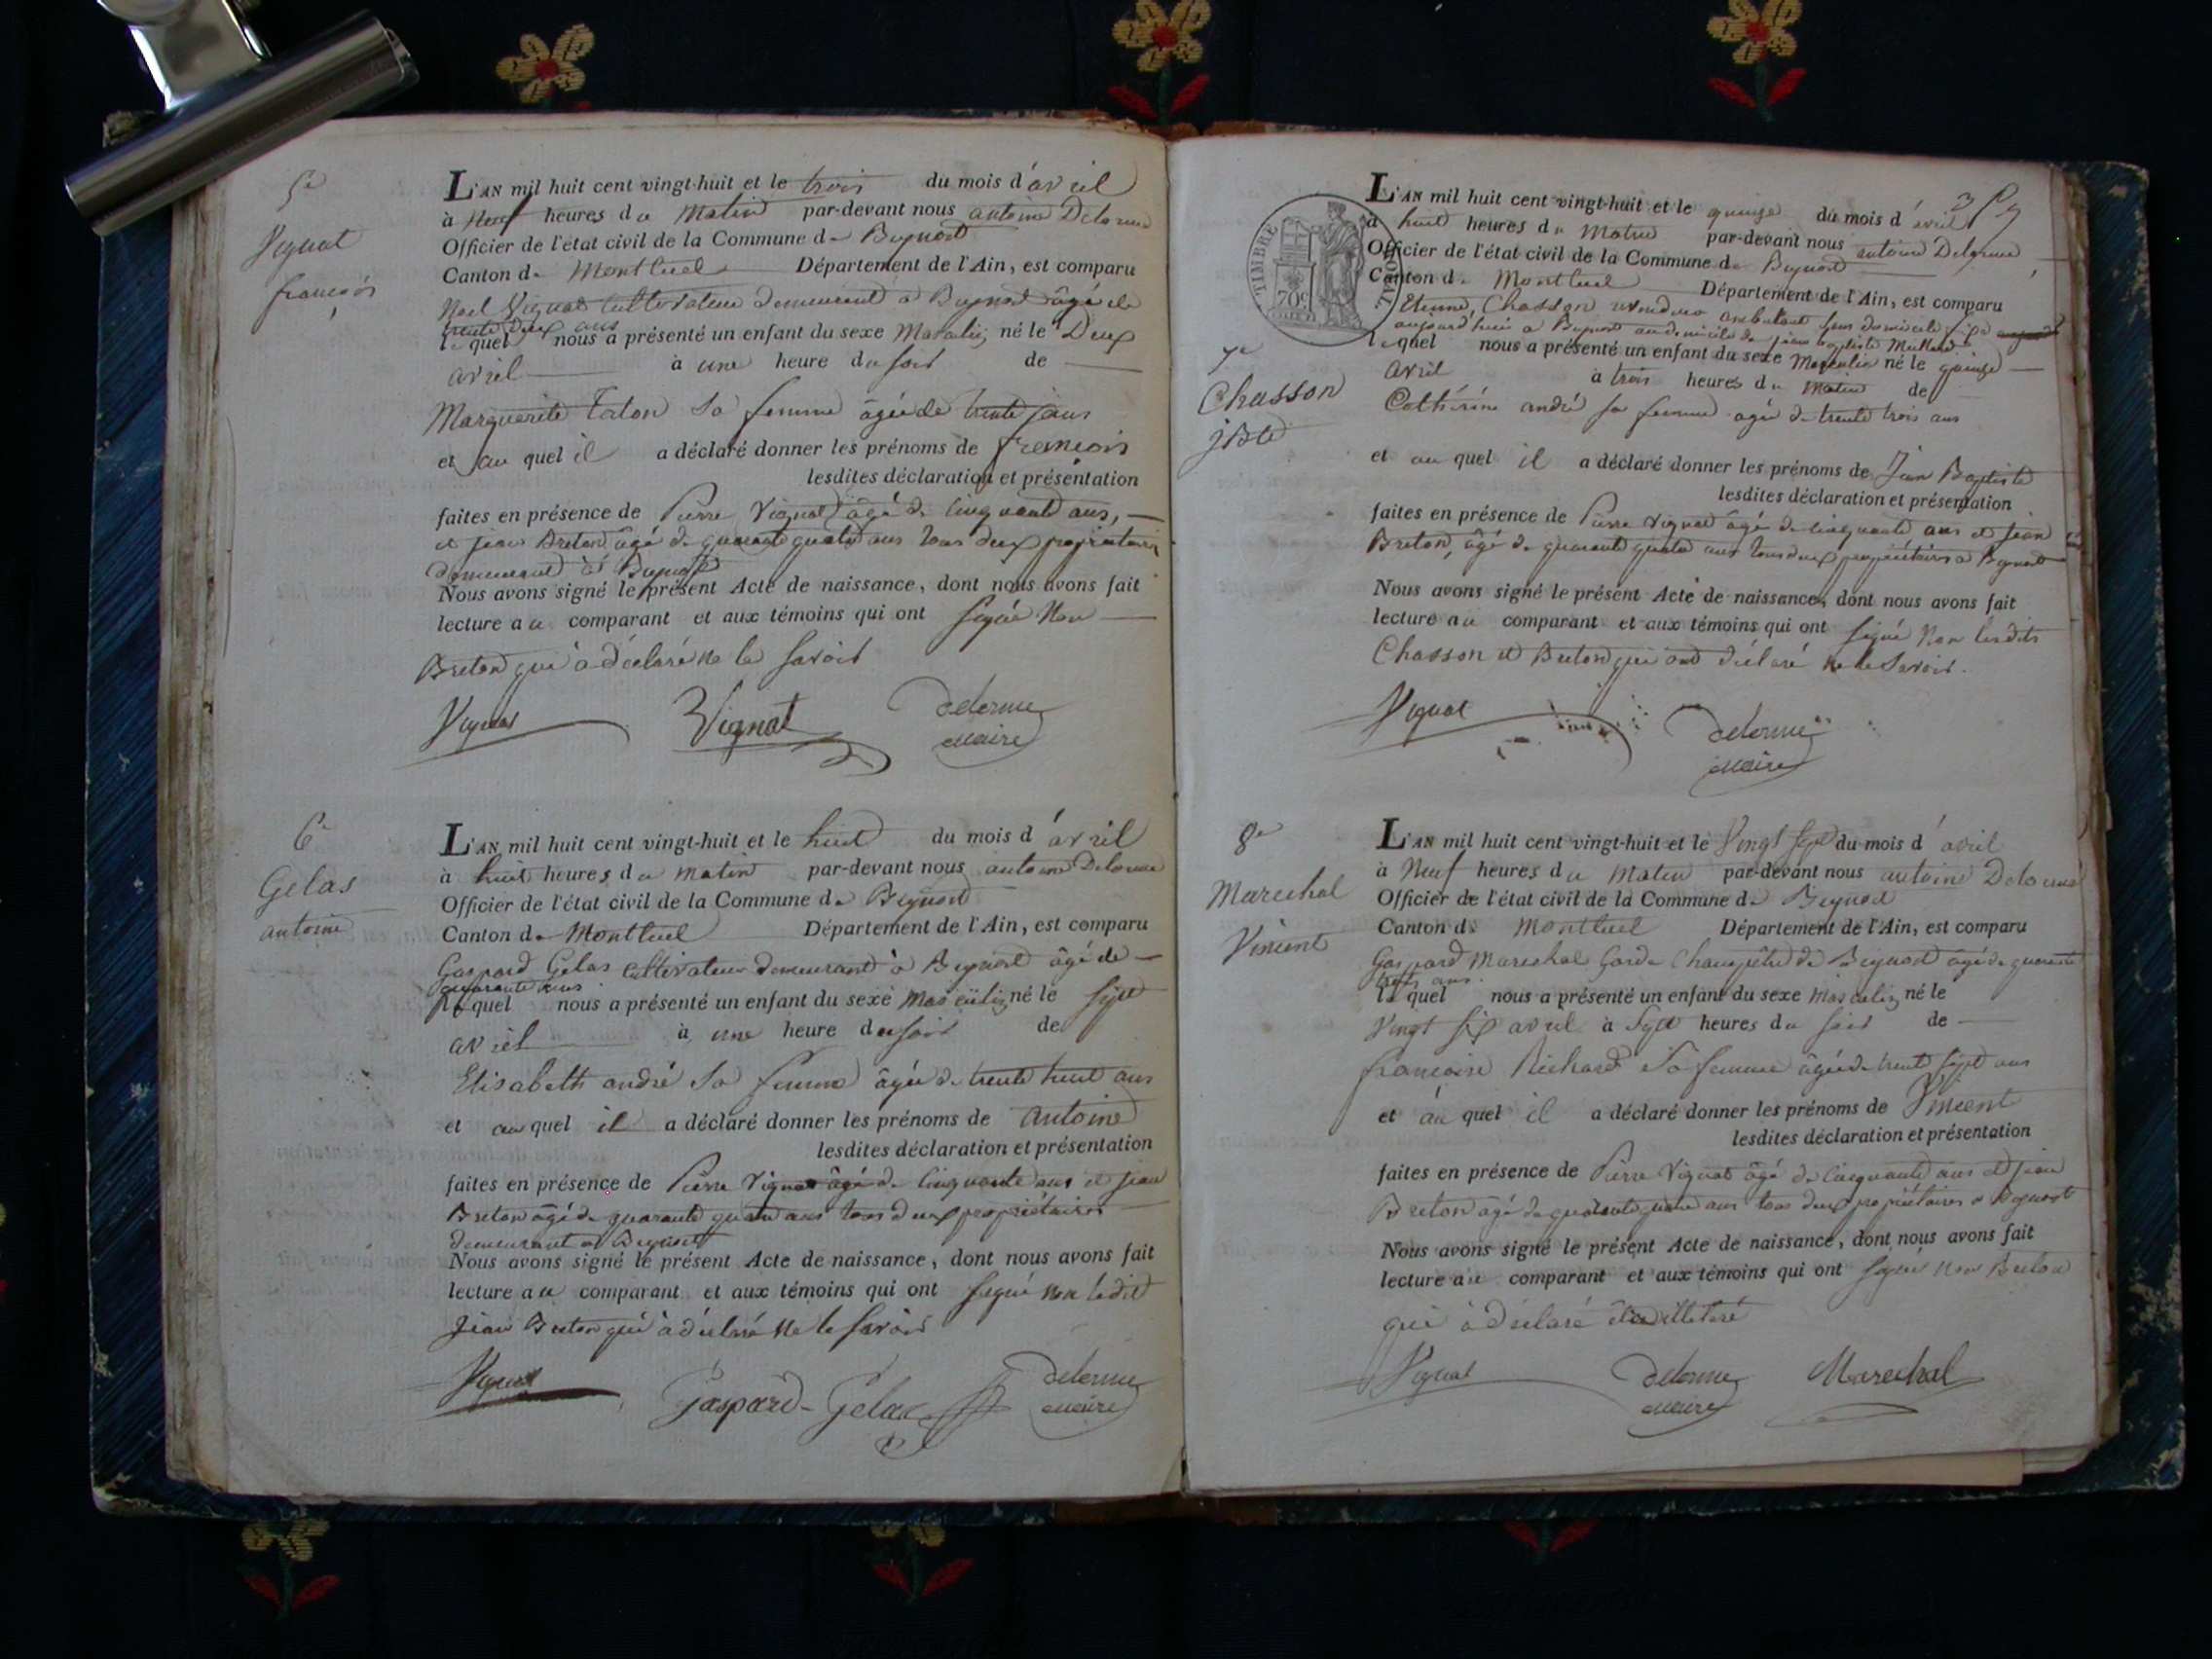 5e
Vignat
françois
L'AN mil huit cent vingt-huit et le trois du mois d'avril
à Neuf heures du Matin par-devant nous antoine Delorme
Officier de l'état civil de la Commune de Beynost
Canton de Montluel Département de l'Ain, est comparu
Noel Vignat cultivateur demeurant à Beynost âgé de
trente Deux ans
lequel nous a présenté un enfant du sexe Masculin né le Deux
avril à une heure du soir de
Marguerite Taton sa femme âgée de trente
et au quel il a déclaré donner les prénoms de françois
lesdites déclaration et présentation
faites en présence de Pierre Vignat âgé de cinquante ans,
et jean Breton âgé de quarante quatre ans tous deux propriétaires
demeurant à Beynost
Nous avons signé le présent Acte de naissance, dont nous avons fait
lecture au comparant et aux témoins qui ont signé Non
Breton qui à déclaré ne le savoir
Vignat Vignat Delorme
maire
6e
Gelas
antoine
L'AN mil huit cent vingt-huit et le huit du mois d'avril
à huit heures du matin par-devant nous antoine Delorme
Officier de l'état civil de la Commune de Beynost
Canton de Montluel Département de l'Ain, est comparu
Gaspard Gelas cultivateur demeurant à Beynost âgé de
quarante ans
lequel nous a présenté un enfant du sexe masculin né le sept
avril à une heure du soir de
Elisabeth andré sa femme âgée de trente huit ans
et au quel il a déclaré donner les prénoms de antoine
lesdites déclaration et présentation
faites en présence de Pierre Vignat âgé de cinquante ans et jean
Breton âgé de quarante quatre ans tous deux propriétaires
demeurant à Beynost
Nous avons signé le présent Acte de naissance, dont nous avons fait
lecture au comparant et aux témoins qui ont signé non ledit
Jean Breton qui à déclaré ne le savoir
Vignat Gaspard Gelas Delorme
maire
TIMBRE ROYAL
70c
7e
Chasson
jBte
L'AN mil huit cent vingt-huit et le quinze du mois d'avril
à huit heures du Matin par-devant nous antoine Delorme
Officier de l'état civil de la Commune de Beynost
Canton de Montluel Département de l'Ain, est comparu
Etienne Chasson ambulant sans domicile fixe
aujourd'hui à Beynost au domicile de jean Baptiste
lequel nous a présenté un enfant du sexe Masculin né le quinze
avril à trois heures du matin de
Cathérine andré sa femme agée de trente trois ans
et au quel il a déclaré donner les prénoms de Jean Baptiste
lesdites déclaration et présentation
faites en présence de Pierre Vignat âgé de cinquante ans et jean
Breton, âgé de quarante quatre ans tous deux propriétaires à Beynost
Nous avons signé le présent Acte de naissance, dont nous avons fait
lecture au comparant et aux témoins qui ont signé Non lesdits
Chasson et Breton qui ont déclaré ne le savoir.
Vignat Delorme
maire
8e
Marechal
Vincent
L'AN mil huit cent vingt-huit et le Vingt sept du mois d'avril
à Neuf heures du Matin par-devant nous antoine Delorme
Officier de l'état civil de la Commune de Beynost
Canton de Montluel Département de l'Ain, est comparu
Gaspard Marechal Garde Champêtre de Beynost âgé de quarante
ans
lequel nous a présenté un enfant du sexe masculin né le
Vingt six avril à Sept heures du soir de
françoise Richard sa femme âgée de trente sept ans
et au quel il a déclaré donner les prénoms de Vincent
lesdites déclaration et présentation
faites en présence de Pierre Vignat âgé de cinquante ans et jean
Breton âgé de quarante quatre ans tous deux propriétaires à Beynost
Nous avons signé le présent Acte de naissance, dont nous avons fait
lecture au comparant et aux témoins qui ont signé non Breton
qui à déclaré être illetéré
Vignat Delorme Marechal
maire